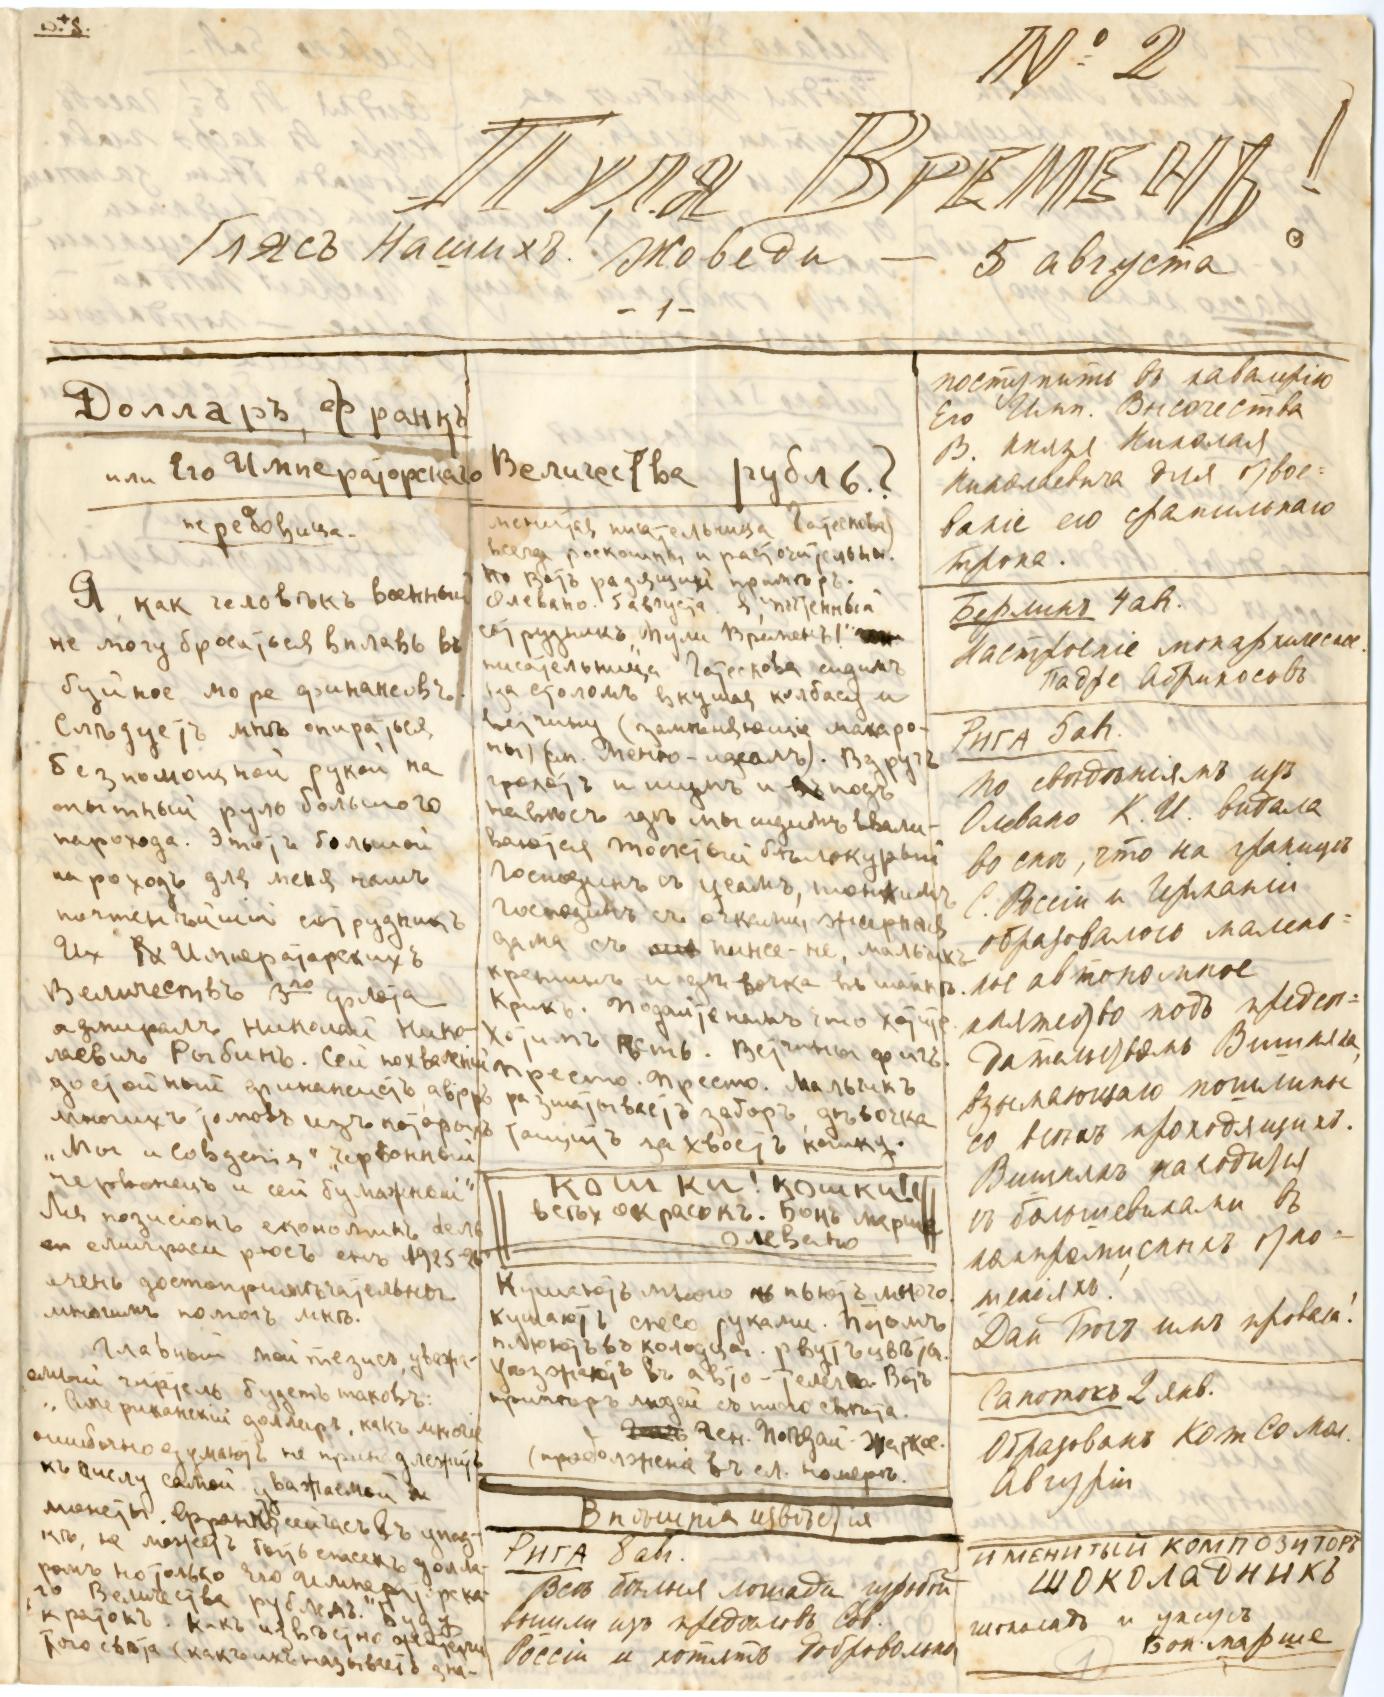 № 2
Пуля Временъ!
Глясъ Нашихъ! Жобеди — 5 августа
- 1 -
Долларъ, франкъ
или Его Императорскаго Величества рубль?
передовица.
Я, какъ человѣкъ военный
не могу бросаться вплавь въ
буйное море финансовъ.
Слѣдуетъ мнѣ опираться
безпомощной рукой на
опытный руль большого
парохода. Этотъ большой
пароходъ для меня нашъ
почтеннѣйшій сотрудникъ
Их Императорскихъ
Величествъ 3го флота
адмиралъ Николай Нико-
лаевич Рыбинъ. Сей похвалений
достойный финансистъ авторъ
многихъ томовъ изъ которыхъ
„Мы и Совдепія" „Червонный
червонецъ и сей бумажной"
Ля позисіонъ економикъ дель
емиграси рюсъ енъ 1925-26
очень достопримѣчательны
многимъ помогъ мнѣ.
Главный мой тезисъ, уважа-
емый читтель будетъ таковъ:
„Американскій долларъ, какъ многіе
ошибочно думаютъ не принадлежитъ
къ числу самой уважаемой
монеты. Франкъ сейчасъ въ упад-
кѣ, не можетъ быть спасенъ долла-
ромъ но только Его Императорска-
го Величества рублемъ." Буду
кратокъ. Какъ извѣстно
того свѣта (какъ ихъ называетъ зна-
менитая писательница Гатескова)
всегда роскошны и расточительны.
Но вотъ разящій примѣръ.
Олевано. 5 августа. Я, почтенный
сотрудникъ „Пули Временъ!"
писательница Гатескова сидимъ
за столомъ вкушая колбасу и
ветчину (замѣняющіе макаро-
ны) (см. Меню-идеалъ). Вдругъ
грохотъ и шумъ и подъ
навѣсъ гдѣ мы сидимъ ввали-
ваются толстый бѣлокурый
Господинъ съ усами, тонкимъ
Господинъ съ очками, жирная
дама съ пинсе-не, мальчикъ
крепышъ и дѣвочка въ шляпѣ.
Крикъ. Подайте намъ что хотите
хотимъ ѣсть. Ветчины фичъ.
Престо. Престо. Мальчикъ
разшатываетъ заборъ, дѣвочка
тащитъ за хвостъ кошку.
КОШКИ! КОШКИ!!
всѣхъ окрасокъ. Бонъ марше
Олевано
Кушаютъ много пьютъ много.
кушаютъ мясо руками. Потомъ
плюютъ въ колодцы. рвутъ цвѣты.
Уѣзжаютъ въ авто-телегѣ. Вотъ
примѣръ людей съ того свѣта.
Ген. Поѣдай-Жаркое.
(продолженіе въ сл. номерѣ.
Внѣшнія извѣстія
РИГА 8 авг.
Всѣ бѣлыя лошади гурьбой
вышли изъ предѣловъ Сов.
Россіи и хотятъ добровольно
поступить въ кавалерію
Его Имп. Высочества
В. князя Николая
Николаевича для отвое=
ваніе его фамильнаго
трона.
Берлинъ 4 авг.
Настроеніе монархическое.
Падре Абрикосовъ
РИГА 5 авг.
По свѣдѣніямъ изъ
Олевано К. И. видала
во снѣ, что на границѣ
С. Россіи и Германіи
образовалось малень=
кое автономное
княжество подъ предсѣ=
дательствомъ Вишняка,
взымающаго пошлины
со всѣхъ проходящихъ.
Вишнякъ находится
съ большевиками въ
компромисныхъ отно-
шеніяхъ!
Дай Богъ имъ провала!
Сапотокъ 2 янв.
Образованъ КотСомол.
Августій
ИМЕНИТЫЙ КОМПОЗИТОРЪ
ШОКОЛАДНИКЪ
шоколадъ и уксусъ
Бон-марше